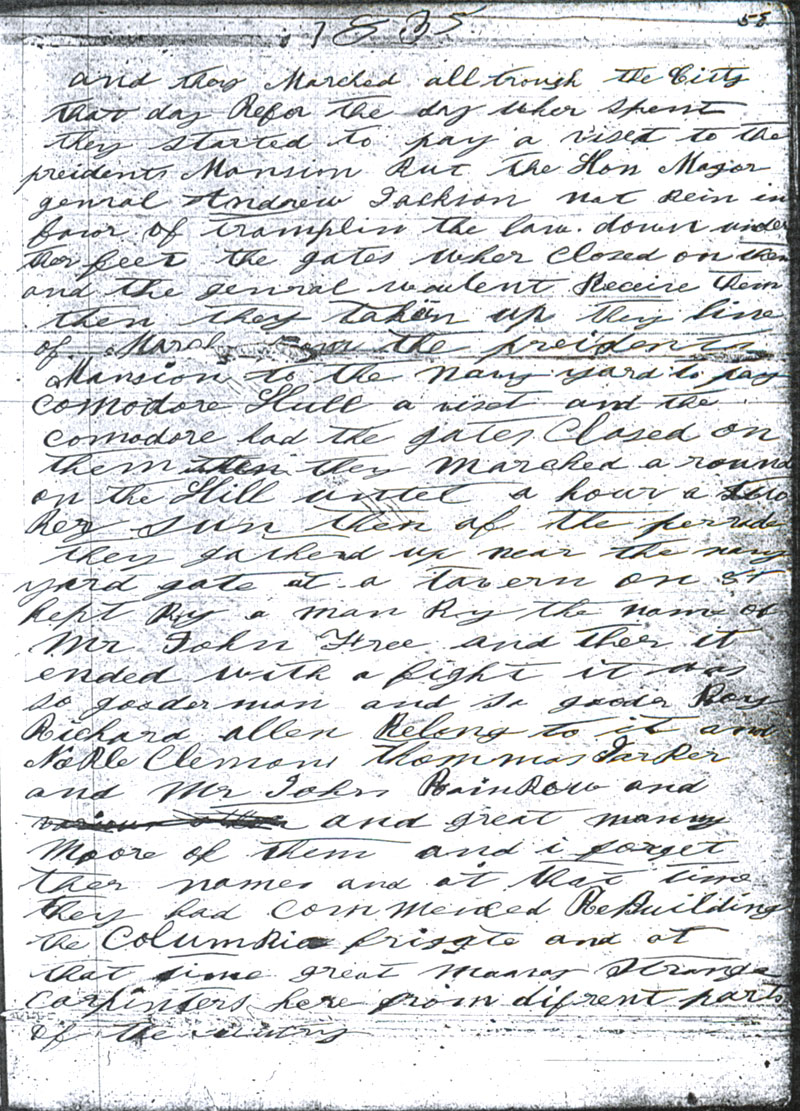 58
1835
and they Marched all trough the City
that day Befor the day wher spent
they started to pay a viset to the
preidents Mansion But the Hon Major
genral Andrew Jackson not bein in
favor of tramplin the law down under
ther feet the gates wher Closed on them
and the genral woulent Receive them
then they takin up they line
of March from the preidents
Mansion to the navy yard to pay
Comodore Hull a viset and the
comodore had the gates Closed on
them then they marched a round
on the Hill untel a hour a two
By sun then of the perade
they gatherd up near the navy
yard gate at a tavern on St
kept By a man By the name of
Mr John Free and ther it
ended with a fight it was
so gooder man and so gooder Boy
Richard allen Belong to it and
Noble Clemons Thommas Barker
and Mr John RainBow and
various other and great manny
Moore of them and i forget
ther names and at that time
they had commenced ReBuilding
the ColumBia frigate and at
that time great Maany Strange
Carpinters here from difrent parts
of the cuntry